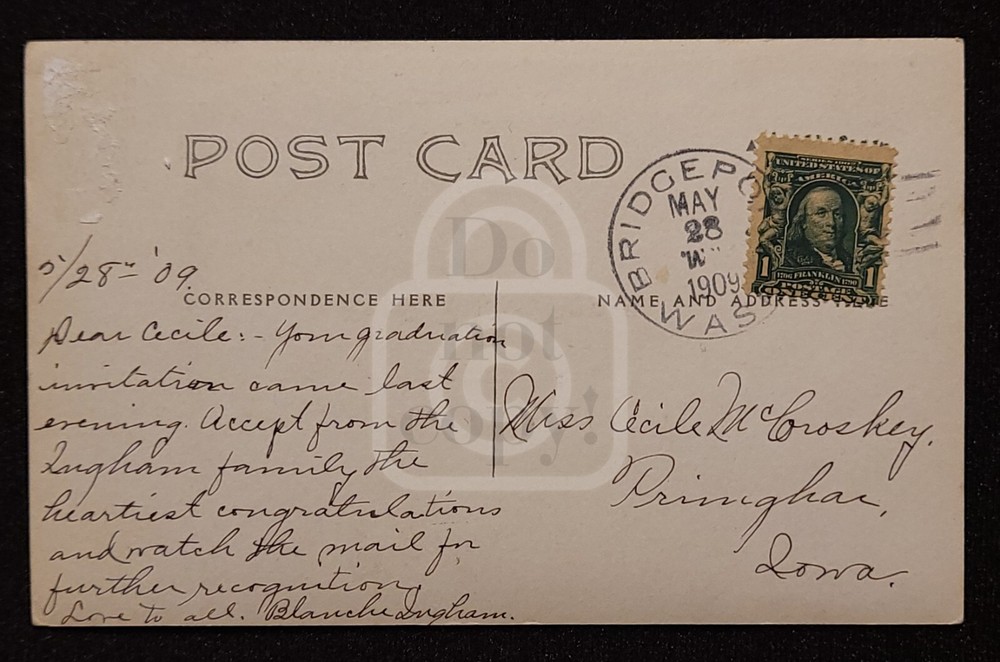 POST CARD
BRIDGEPO
MAY
28
"W"
1909
WAS
SERIES 1902
UNITED STATES OF
AMERICA
1 1706 FRANKLIN 1790 1
POSTAGE
5/28" '09.
CORRESPONDENCE HERE
NAME AND ADDRESS
Dear Cecile:- Your graduation
invitation came last
evening. Accept from the
Ingham family the
heartiest congratulations
and watch the mail for
further recognition.
Love to all. Blanche Ingham.
Miss Cecile McCroskey,
Primghar,
Iowa.
Do
not
copy!